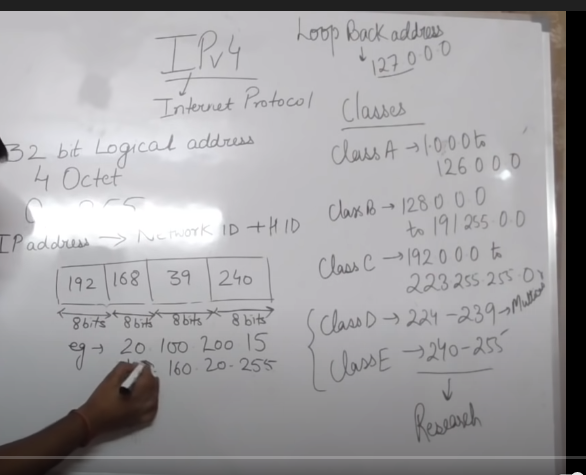 IPv4
Internet Protocol
32 bit Logical address
4 Octet
IP address → Network ID + H ID
192 168 39 240
8bits 8bits 8bits 8bits
eg → 20 100 200 15
160. 20. 255
Loop Back address
127 0 0 0
Classes
Class A → 1.0.0.0 to
126 0 0 0
Class B → 128 0 0 0
to 191 255.0.0
Class C → 192 0 0 0 to
223 255.255.0
Class D → 224 - 239 →
Class E → 240 - 255
Research